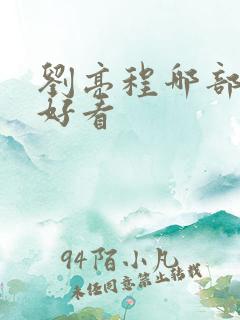 劉亭程那部
好看
94陌小凡
未经同意禁止转载